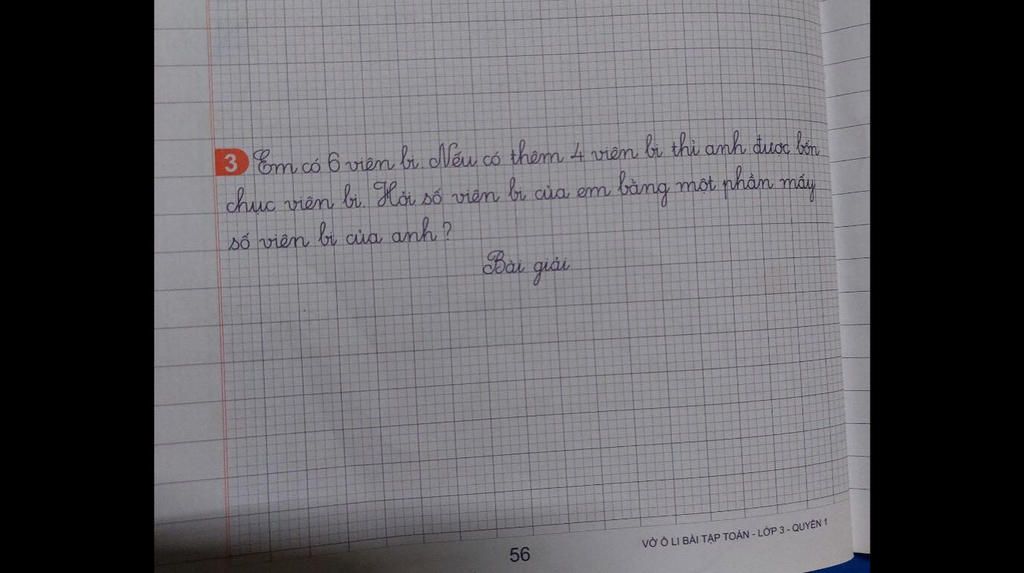 3 Em có 6 viên bi. Nếu có thêm 4 viên bi thì anh được bốn
chục viên bi. Hỏi số viên bi của em bằng một phần mấy
số viên bi của anh?
Bài giải
56
VỞ Ô LI BÀI TẬP TOÁN - LỚP 3 - QUYỂN 1